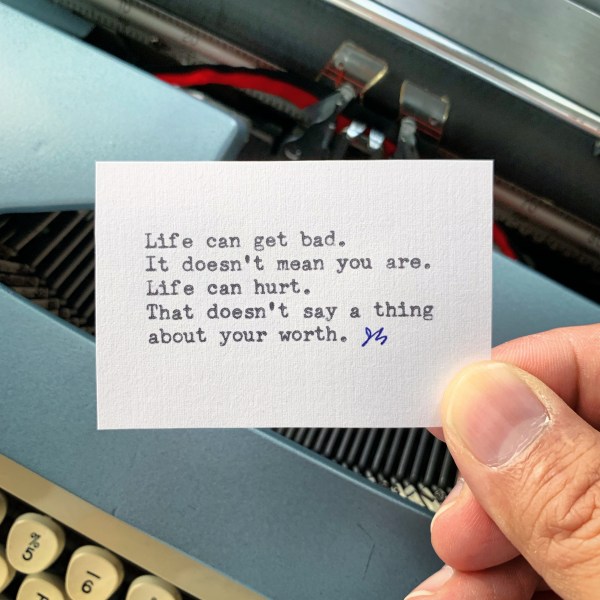 Life can get bad.
It doesn't mean you are.
Life can hurt.
That doesn't say a thing
about your worth.
5
6